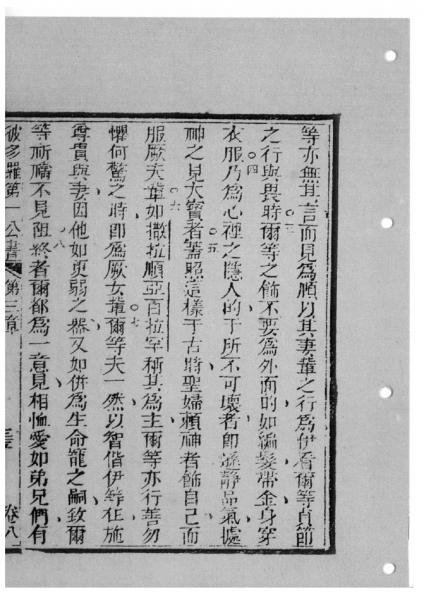 等亦無其言而見為順以其妻輩之行為伊看爾等貞節
之行與畏時爾等之飾不要為外面的如編髮帶金身穿
衣服乃為心裡之隱人的于所不可壞者即遜靜品氣處
神之見大寶者蓋照這樣于古時聖婦賴神者飾自己而
服厥夫輩如撒拉順亞百拉罕稱其為主爾等亦行善勿
懼何驚之時即為厥女輩爾等夫一然以智偕伊等住施
尊貴與妻因他如更弱之器又如併為生命寵之嗣致爾
等祈禱不見阻終者爾都為一意見相恤愛如弟兄們有
彼多羅第一公書 第三章 卷八
三
四
五
六
七
八